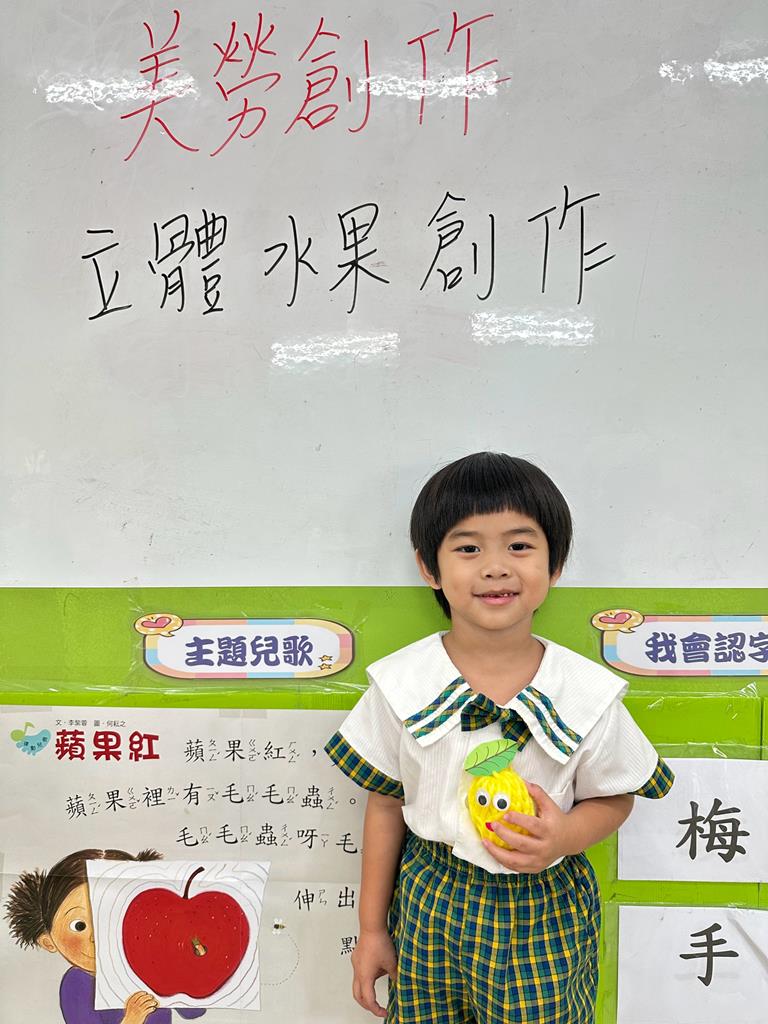 美勞創作
立體水果創作
主題兒歌
我會認字
文·李紫蓉 圖·何耘之
蘋果紅
蘋ㄆㄧㄥˊ果ㄍㄨㄛˇ紅ㄏㄨㄥˊ，
蘋ㄆㄧㄥˊ果ㄍㄨㄛˇ裡ㄌㄧˇ有ㄧㄡˇ毛ㄇㄠˊ毛ㄇㄠˊ蟲ㄔㄨㄥˊ。
毛ㄇㄠˊ毛ㄇㄠˊ蟲ㄔㄨㄥˊ呀ㄧㄚ毛
伸ㄕㄣ出
梅
手